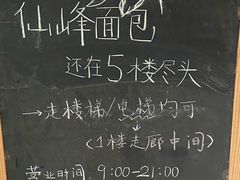 仙峰面包
还在5楼尽头
→走楼梯/电梯均可
(1楼走廊中间)
营业时间 9:00-21:00